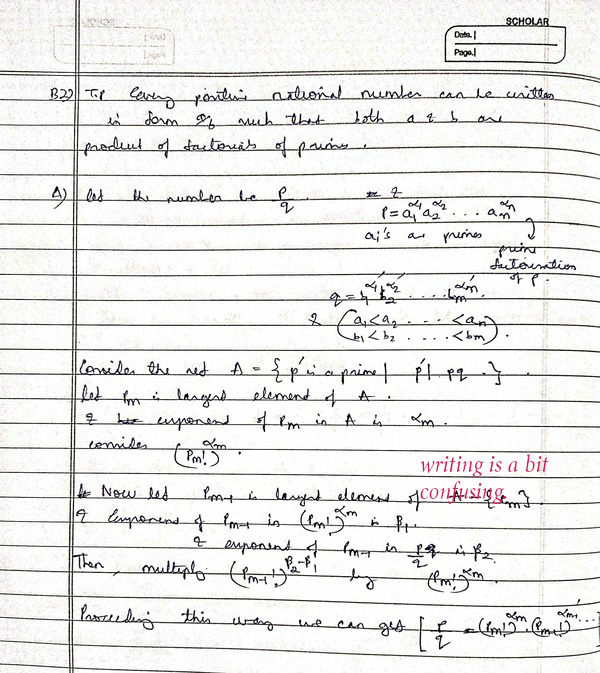 SCHOLAR
Date.
Page.
B2) T.P Every positive rational number can be written
in form a/b such that both a & b are
product of factorials of primes.
A) let the number be p/q. &
p = a₁^α₁ a₂^α₂ ... aₙ^αₙ
aᵢ's are primes
prime
factorisation
of p.
q = b₁^α₁' b₂^α₂' ..... bₘ^αₘ'.
& (a₁<a₂ .... <aₙ
b₁<b₂ .... <bₘ).
Consider the set A = { p' is a prime | p' | pq . }
let Pₘ is largest element of A.
& exponent of Pₘ in A is αₘ.
consider (Pₘ!)^αₘ.
writing is a bit
confusing.
Now let Pₘ₋₁ is largest element of A - {Pₘ}
& Exponent of Pₘ₋₁ in (Pₘ!)^αₘ is β₁.
& exponent of Pₘ₋₁ in p/q is β₂.
Then, multiply (Pₘ₋₁!)^β₂-β₁ by (Pₘ!)^αₘ.
Proceeding this way we can get [p/q = (Pₘ!)^αₘ · (Pₘ₋₁!)^αₘ₋₁' ...]